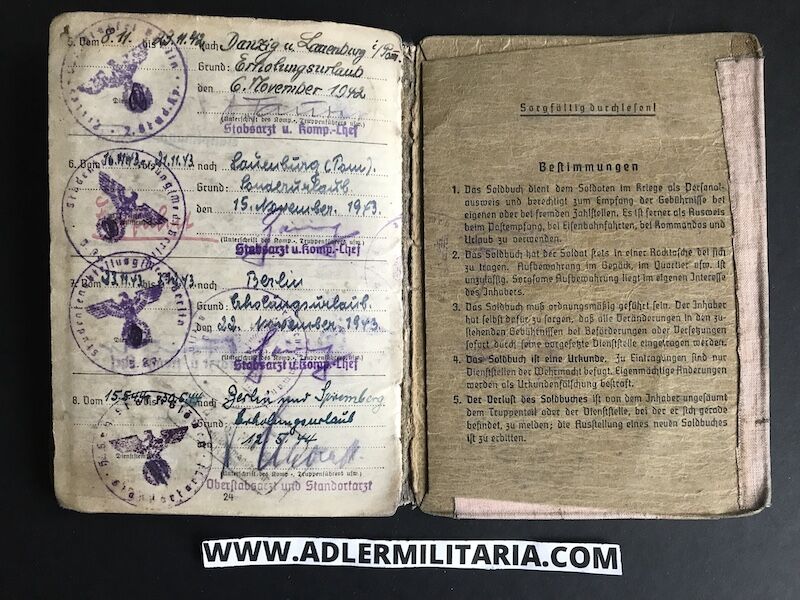 5. Vom 8.11. bis 23.11.42 nach Danzig u. Lauenburg i/Pom.
Grund: Erholungsurlaub
den 6. November 1942
(Unterschrift des Komp.-, Truppenführers usw.)
Stabsarzt u. Komp.-Chef
6. Vom bis 21.11.43 nach Lauenburg (Pom).
Grund: Sonderurlaub
den 15. November. 1943.
(Unterschrift des Komp.-, Truppenführers usw.)
Stabsarzt u. Komp.-Chef
7. Vom bis nach Berlin
Grund: Erholungsurlaub.
den 22. November. 1943
(Unterschrift des Komp.-, Truppenführers usw.)
Stabsarzt u. Komp.-Chef
8. Vom 15.5.44 bis nach Berlin und Spremberg
Erholungsurlaub
12.5.44
(Unterschrift des Komp.-, Truppenführers usw.)
Oberstabsarzt und Standortarzt
24
Sorgfältig durchlesen!
Bestimmungen
1. Das Soldbuch dient dem Soldaten im Kriege als Personal-
ausweis und berechtigt zum Empfang der Gebührnisse bei
eigenen oder bei fremden Zahlstellen. Es ist ferner als Ausweis
beim Postempfang, bei Eisenbahnfahrten, bei Kommandos und
Urlaub zu verwenden.
2. Das Soldbuch hat der Soldat stets in einer Rocktasche bei sich
zu tragen. Aufbewahrung im Gepäck, im Quartier usw. ist
unzulässig. Sorgsame Aufbewahrung liegt im eigenen Interesse
des Inhabers.
3. Das Soldbuch muß ordnungsmäßig geführt sein. Der Inhaber
hat selbst dafür zu sorgen, daß alle Veränderungen in den zu-
stehenden Gebührnissen bei Beförderungen oder Versetzungen
sofort durch seine vorgesetzte Dienststelle eingetragen werden.
4. Das Soldbuch ist eine Urkunde. Zu Eintragungen sind nur
Dienststellen der Wehrmacht befugt. Eigenmächtige Änderungen
werden als Urkundenfälschung bestraft.
5. Der Verlust des Soldbuches ist von dem Inhaber ungesäumt
dem Truppenteil oder der Dienststelle, bei der er sich gerade
befindet, zu melden; die Ausstellung eines neuen Soldbuches
ist zu erbitten.
WWW.ADLERMILITARIA.COM